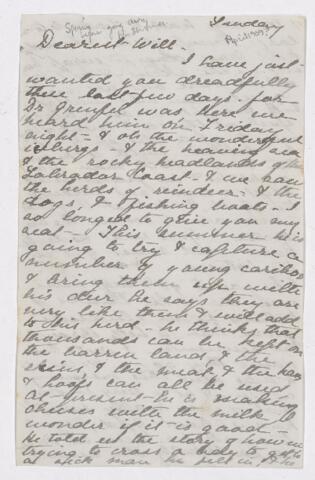 Sunday
Spring
April 1909?
Dearest Will.
I have just
wanted you dreadfully
these last few days. for
Dr Grenfell was here we
heard him on Friday
night - & oh the wonderful
icebergs - & the heaving sea
& the rocky headlands of the
Labrador Coast - & we saw
the herds of reindeer - & the
dogs, & fishing boats - I
so longed to give you my
seat - This summer he is
going to try & capture a
number of young caribou
& bring them up with
his deer he says they are
very like them & will add
to his herd - he thinks that
thousands can be kept on
the barren land, & the
skins, & the meat & the
& hoofs can all be used
at present he is making
cheeses with the milk I
wonder if it is good -
He told us the story of how in
trying to cross a bay to get to
a sick man he fell in, & his